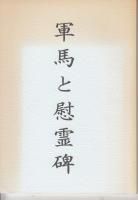 軍馬と慰霊碑